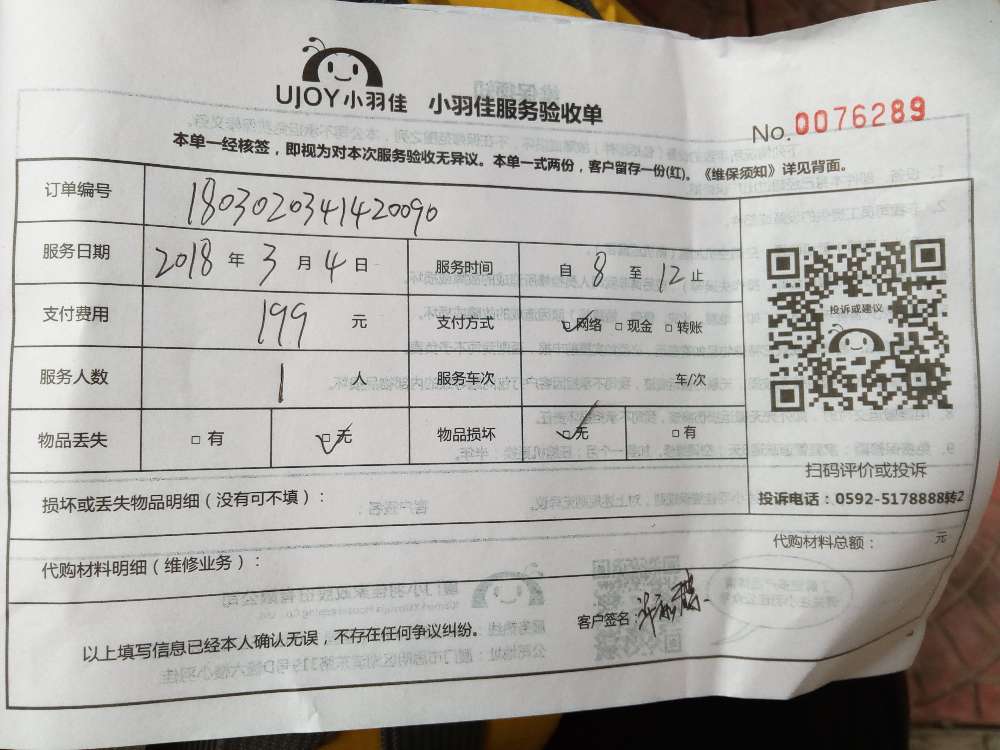 UJOY小羽佳 小羽佳服务验收单
No. 0076289
本单一经核签，即视为对本次服务验收无异议。本单一式两份，客户留存一份(红)。《维保须知》详见背面。
订单编号 1803020341420090
服务日期 2018 年 3 月 4 日 服务时间 自 8 至 12 止
支付费用 199 元 支付方式 ☑网络 □现金 □转账
投诉或建议
服务人数 1 人 服务车次 车/次
物品丢失 □有 ☑无 物品损坏 ☑无 □有
扫码评价或投诉
投诉电话：0592-5178888转2
损坏或丢失物品明细（没有可不填）：
代购材料明细（维修业务）： 代购材料总额： 元
以上填写信息已经本人确认无误，不存在任何争议纠纷。 客户签名：